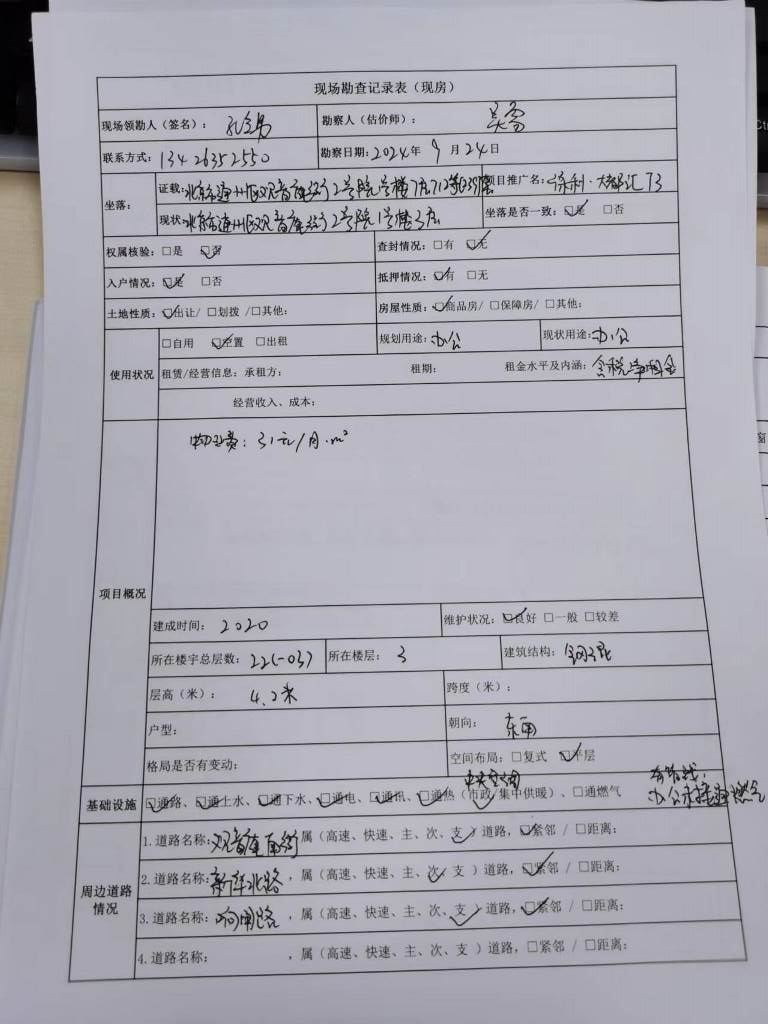 现场勘查记录表（现房）
现场领勘人（签名）： 勘察人（估价师）：
联系方式：13426352550 勘察日期：2024年 9 月 24 日
坐落： 证载：北京市通州区观音庵 2号院 号楼7层712等 项目推广名： 大都汇 T3
现状：北京市通州区观音庵 2号院1号楼3层 坐落是否一致：☑是 □否
权属核验：□是 ☑否 查封情况：□有 ☑无
入户情况：☑是 □否 抵押情况：☑有 □无
土地性质：☑出让/ □划拨 /□其他： 房屋性质：☑商品房/ □保障房/ □其他：
使用状况 □自用 ☑空置 □出租 规划用途：办公 现状用途：办公
租赁/经营信息：承租方： 租期： 租金水平及内涵：含税净租金
经营收入、成本：
项目概况
物业费：31元/月·m²
建成时间：2020 维护状况：☑良好 □一般 □较差
所在楼宇总层数：22(-03) 所在楼层：3 建筑结构：钢混
层高（米）：4.2米 跨度（米）：
户型： 朝向：东南
格局是否有变动： 空间布局：□复式 ☑平层
中央空调 有管线，
基础设施 ☑通路、☑通上水、☑通下水、☑通电、☑通讯、☑通热（市政/集中供暖）、□通燃气 办公未接通燃气
周边道路情况
1.道路名称：观音庵南街 ，属（高速、快速、主、次、支）道路，☑紧邻 / □距离：
2.道路名称：新华北路 ，属（高速、快速、主、次、支）道路，☑紧邻 / □距离：
3.道路名称： ，属（高速、快速、主、次、支）道路，☑紧邻 / □距离：
4.道路名称： ，属（高速、快速、主、次、支）道路，□紧邻 / □距离：